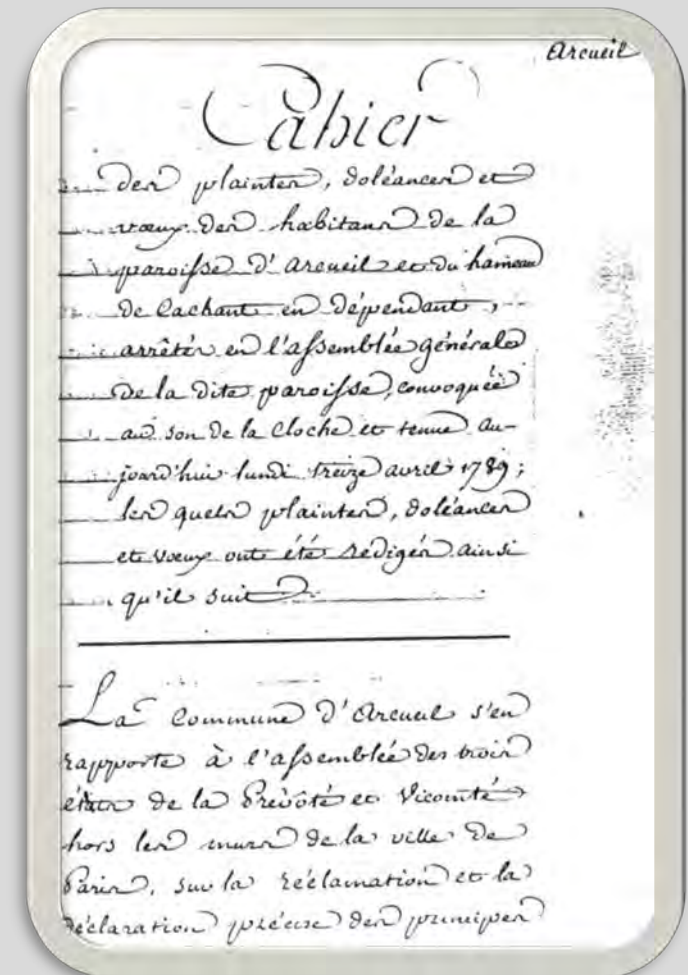 Arcueil
Cahier
des plaintes, doléances et
vœux des habitans de la
paroisse d'Arcueil et du hameau
de Cachant en dépendant,
arrêtés en l'assemblée générale
de la dite paroisse, convoquée
au son de la cloche et tenue au-
jourd'hui lundi treize avril 1789;
les quels plaintes, doléances
et voeux ont été rédigés ainsi
qu'il suit
La Commune d'Arcueil s'en
rapporte à l'assemblée des trois
états de la Prévôté et Vicomté
hors les murs de la ville de
Paris, sur la réclamation et la
déclaration précise des principes